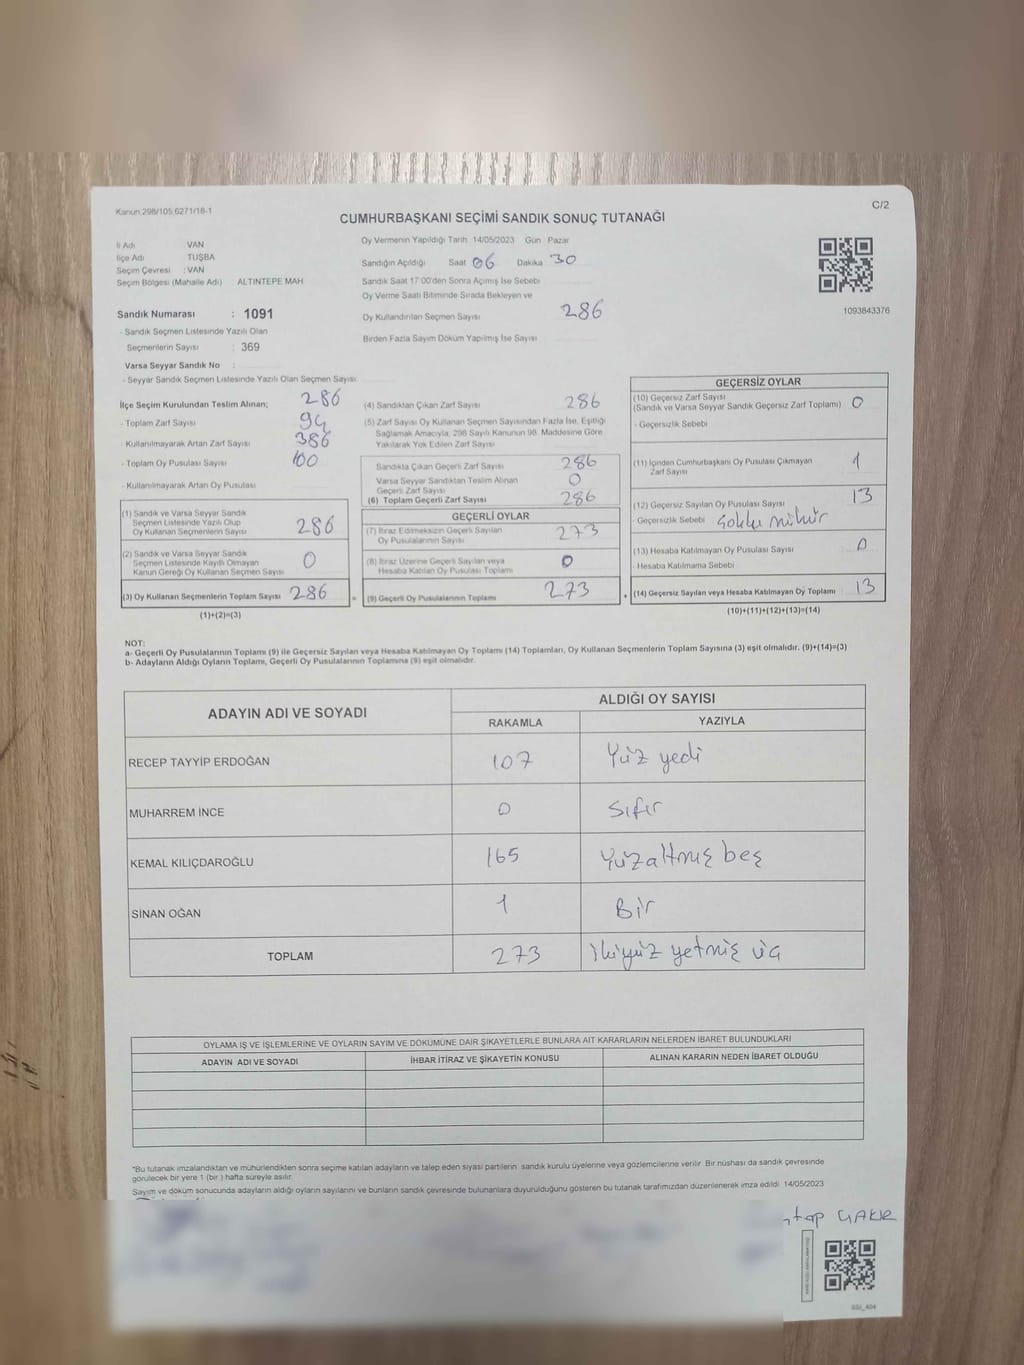 Kanun 298/105,6271/18-1
C/2
CUMHURBAŞKANI SEÇİMİ SANDIK SONUÇ TUTANAĞI
İl Adı VAN
İlçe Adı TUŞBA
Seçim Çevresi : VAN
Seçim Bölgesi (Mahalle Adı) ALTINTEPE MAH
Sandık Numarası : 1091
- Sandık Seçmen Listesinde Yazılı Olan
Seçmenlerin Sayısı : 369
Varsa Seyyar Sandık No :
- Seyyar Sandık Seçmen Listesinde Yazılı Olan Seçmen Sayısı
Oy Vermenin Yapıldığı Tarih 14/05/2023 Gün Pazar
Sandığın Açıldığı Saat 06 Dakika 30
Sandık Saat 17:00'den Sonra Açımış İse Sebebi
Oy Verme Saati Bitiminde Sırada Bekleyen ve
Oy Kullandırılan Seçmen Sayısı 286
Birden Fazla Sayım Döküm Yapılmış İse Sayısı
1093843376
İlçe Seçim Kurulundan Teslim Alınan; 286
- Toplam Zarf Sayısı 94
- Kullanılmayarak Artan Zarf Sayısı 386
- Toplam Oy Pusulası Sayısı 100
- Kullanılmayarak Artan Oy Pusulası
(1) Sandık ve Varsa Seyyar Sandık
Seçmen Listesinde Yazılı Olup
Oy Kullanan Seçmenlerin Sayısı 286
(2) Sandık ve Varsa Seyyar Sandık
Seçmen Listesinde Kayıtlı Olmayan
Kanun Gereği Oy Kullanan Seçmen Sayısı 0
(3) Oy Kullanan Seçmenlerin Toplam Sayısı 286 =
(1)+(2)=(3)
(4) Sandıktan Çıkan Zarf Sayısı 286
(5) Zarf Sayısı Oy Kullanan Seçmen Sayısından Fazla İse, Eşitliği
Sağlamak Amacıyla, 298 Sayılı Kanunun 98. Maddesine Göre
Yakılarak Yok Edilen Zarf Sayısı
Sandıkta Çıkan Geçerli Zarf Sayısı 286
Varsa Seyyar Sandıktan Teslim Alınan
Geçerli Zarf Sayısı 0
(6) Toplam Geçerli Zarf Sayısı 286
GEÇERLİ OYLAR
(7) İtiraz Edilmeksizin Geçerli Sayılan
Oy Pusulalarının Sayısı 273
(8) İtiraz Üzerine Geçerli Sayılan veya
Hesaba Katılan Oy Pusulası Toplamı 0
(9) Geçerli Oy Pusulalarının Toplamı 273 +
GEÇERSİZ OYLAR
(10) Geçersiz Zarf Sayısı
(Sandık ve Varsa Seyyar Sandık Geçersiz Zarf Toplamı) 0
- Geçersizlik Sebebi
(11) İçinden Cumhurbaşkanı Oy Pusulası Çıkmayan
Zarf Sayısı 1
(12) Geçersiz Sayılan Oy Pusulası Sayısı 13
- Geçersizlik Sebebi Çoklu mühür
(13) Hesaba Katılmayan Oy Pusulası Sayısı 0
- Hesaba Katılmama Sebebi
(14) Geçersiz Sayılan veya Hesaba Katılmayan Oy Toplamı 13
(10)+(11)+(12)+(13)=(14)
NOT:
a- Geçerli Oy Pusulalarının Toplamı (9) ile Geçersiz Sayılan veya Hesaba Katılmayan Oy Toplamı (14) Toplamları, Oy Kullanan Seçmenlerin Toplam Sayısına (3) eşit olmalıdır. (9)+(14)=(3)
b- Adayların Aldığı Oyların Toplamı, Geçerli Oy Pusulalarının Toplamına (9) eşit olmalıdır.
ADAYIN ADI VE SOYADI
ALDIĞI OY SAYISI
RAKAMLA YAZIYLA
RECEP TAYYİP ERDOĞAN 107 Yüz yedi
MUHARREM İNCE 0 Sıfır
KEMAL KILIÇDAROĞLU 165 Yüzaltmış beş
SİNAN OĞAN 1 Bir
TOPLAM 273 ikiyüz yetmiş üç
OYLAMA İŞ VE İŞLEMLERİNE VE OYLARIN SAYIM VE DÖKÜMÜNE DAİR ŞİKAYETLERLE BUNLARA AİT KARARLARIN NELERDEN İBARET BULUNDUKLARI
ADAYIN ADI VE SOYADI İHBAR İTİRAZ VE ŞİKAYETİN KONUSU ALINAN KARARIN NEDEN İBARET OLDUĞU
*Bu tutanak imzalandıktan ve mühürlendikten sonra seçime katılan adayların ve talep eden siyasi partilerin sandık kurulu üyelerine veya gözlemcilerine verilir. Bir nüshası da sandık çevresinde
görülecek bir yere 1 (bir) hafta süreyle asılır.
Sayım ve döküm sonucunda adayların aldığı oyların sayılarını ve bunların sandık çevresinde bulunanlara duyurulduğunu gösteren bu tutanak tarafımızdan düzenlenerek imza edildi. 14/05/2023
ÇAKIR
SSİ_404